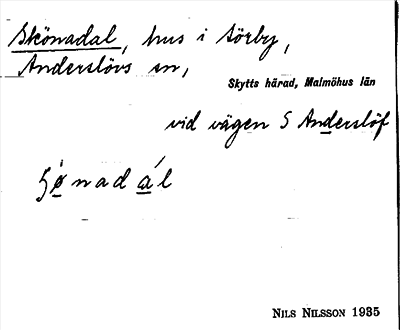 Skönadal, hus i Sörby,
Anderslövs sn,
Skytts härad, Malmöhus län
vid vägen S Anderslöf
NILS NILSSON 1935